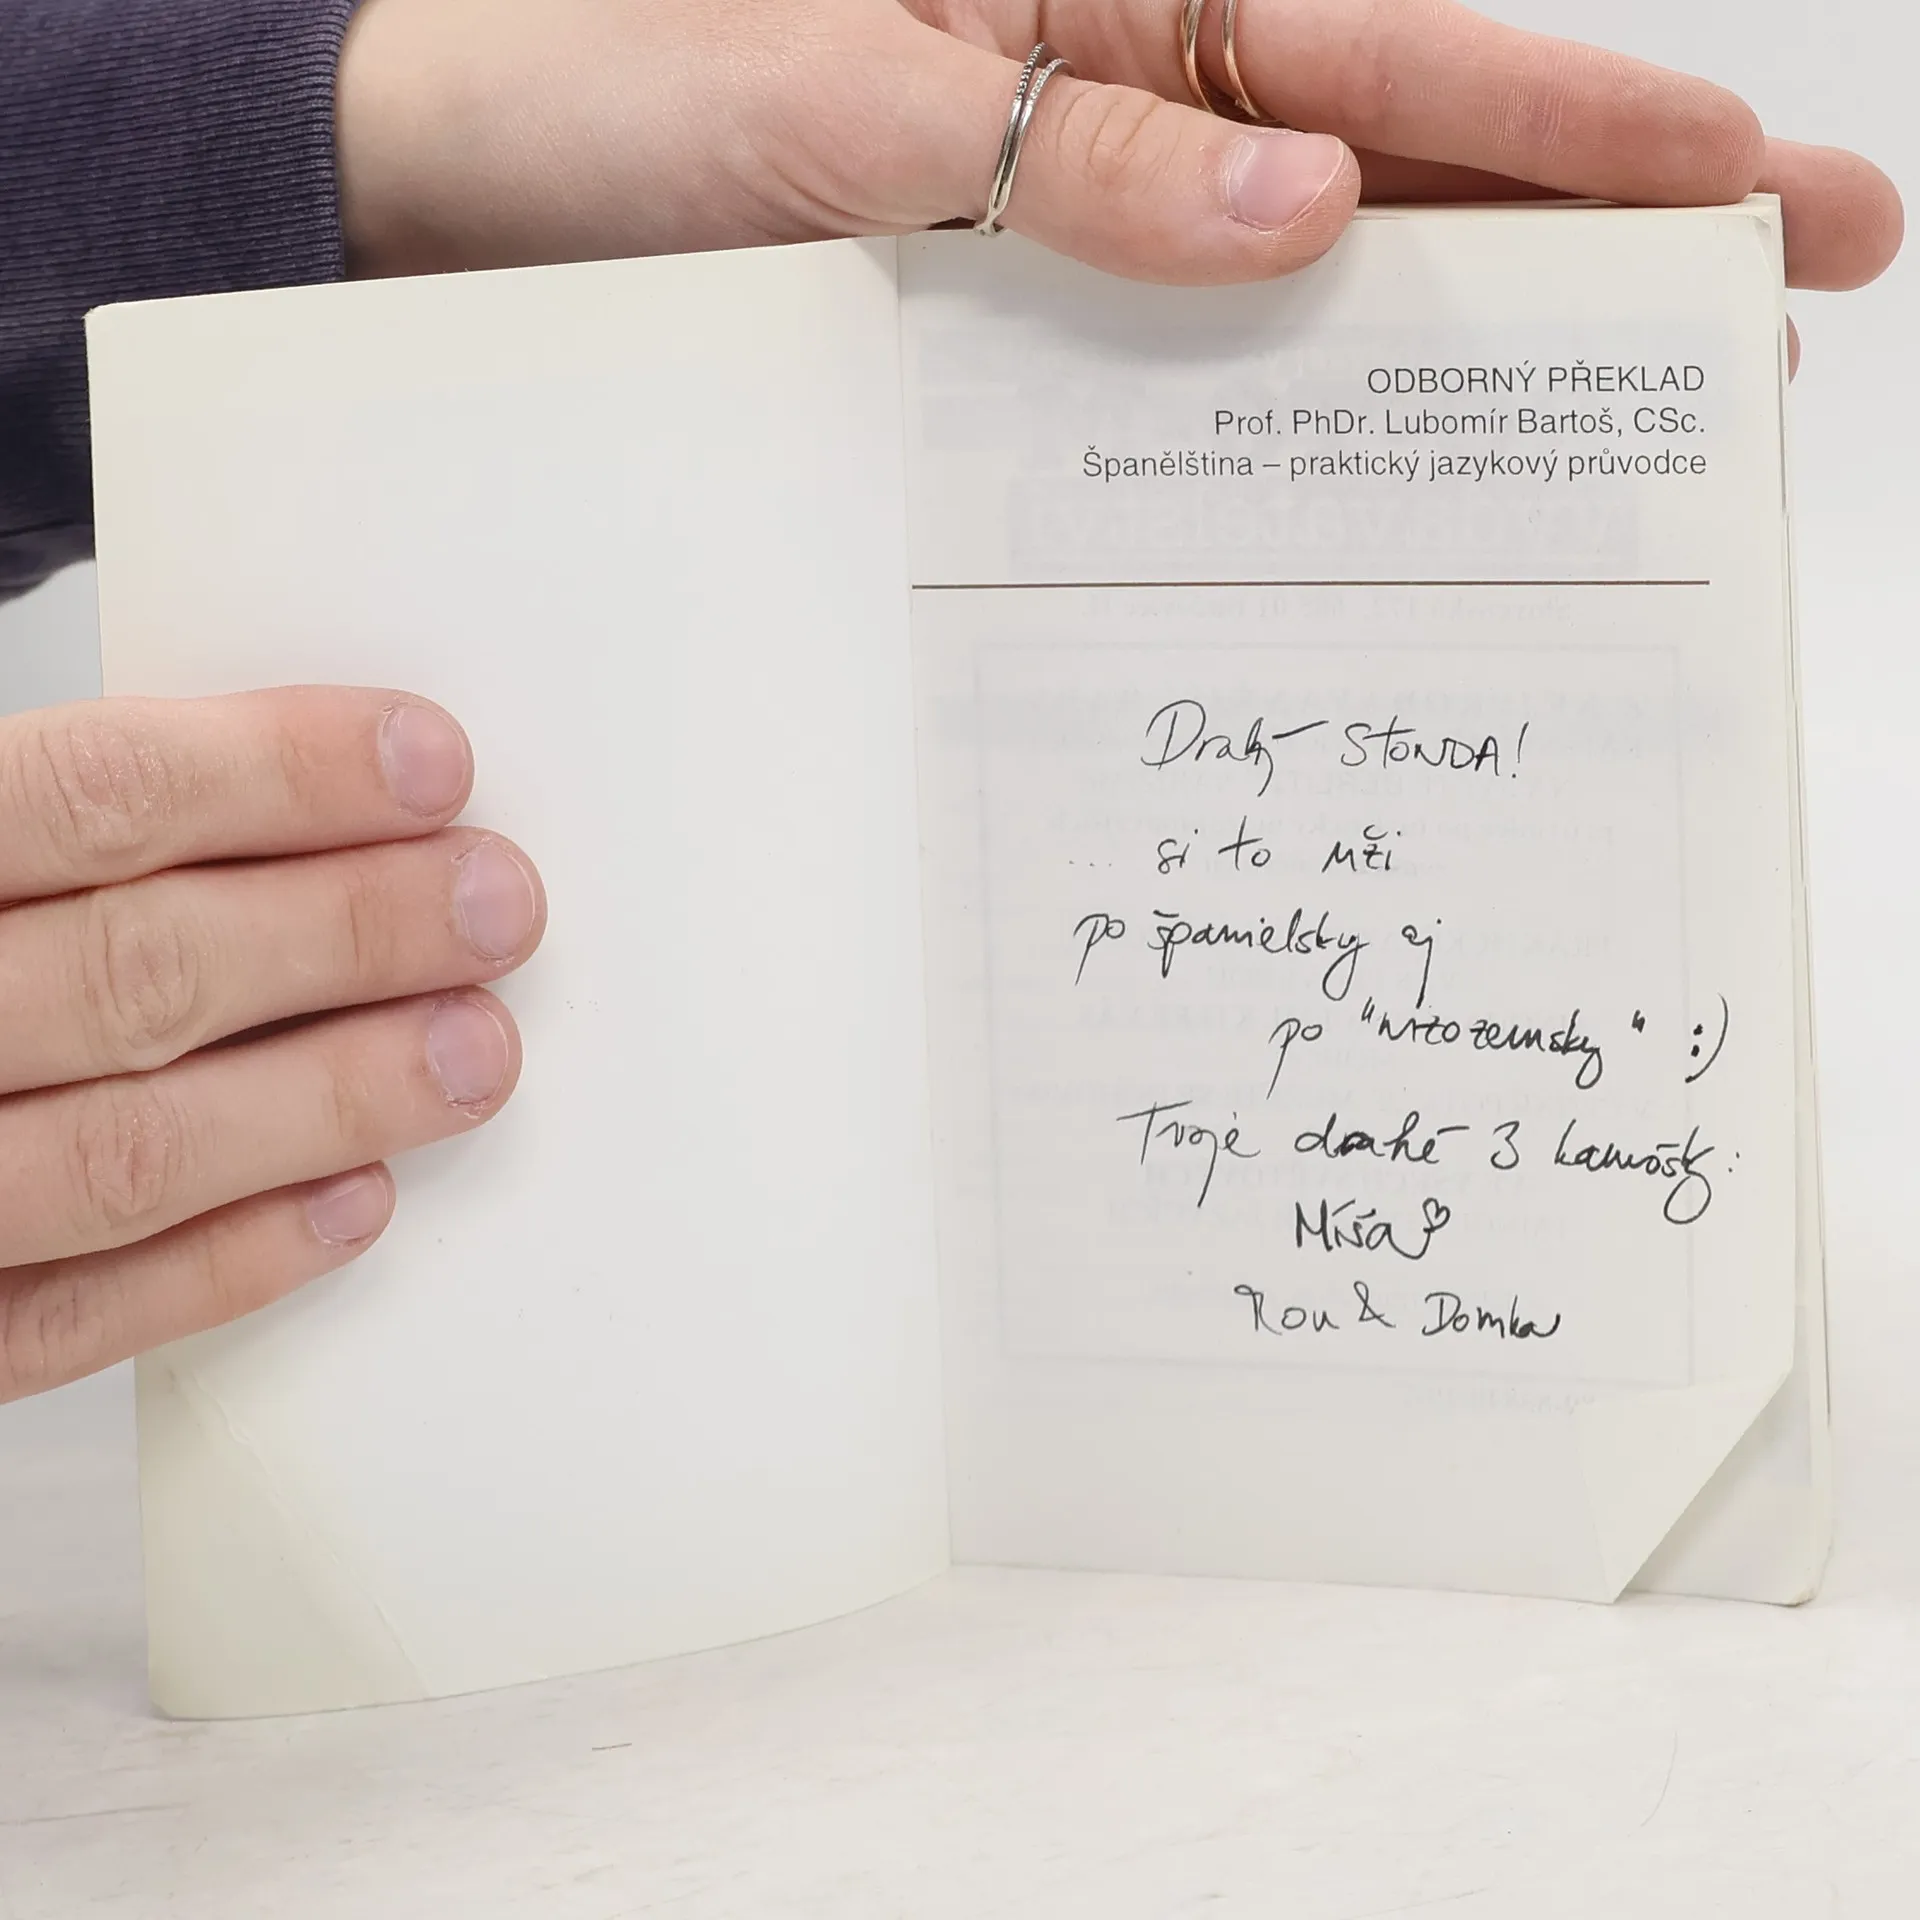 ODBORNÝ PŘEKLAD
Prof. PhDr. Lubomír Bartoš, CSc.
Španělština – praktický jazykový průvodce
Drahý STONDA!
... si to uži
po španielsky aj
po "nizozemsky" :)
Tvoje drahé 3 kamošky:
Míša
Rou & Domka